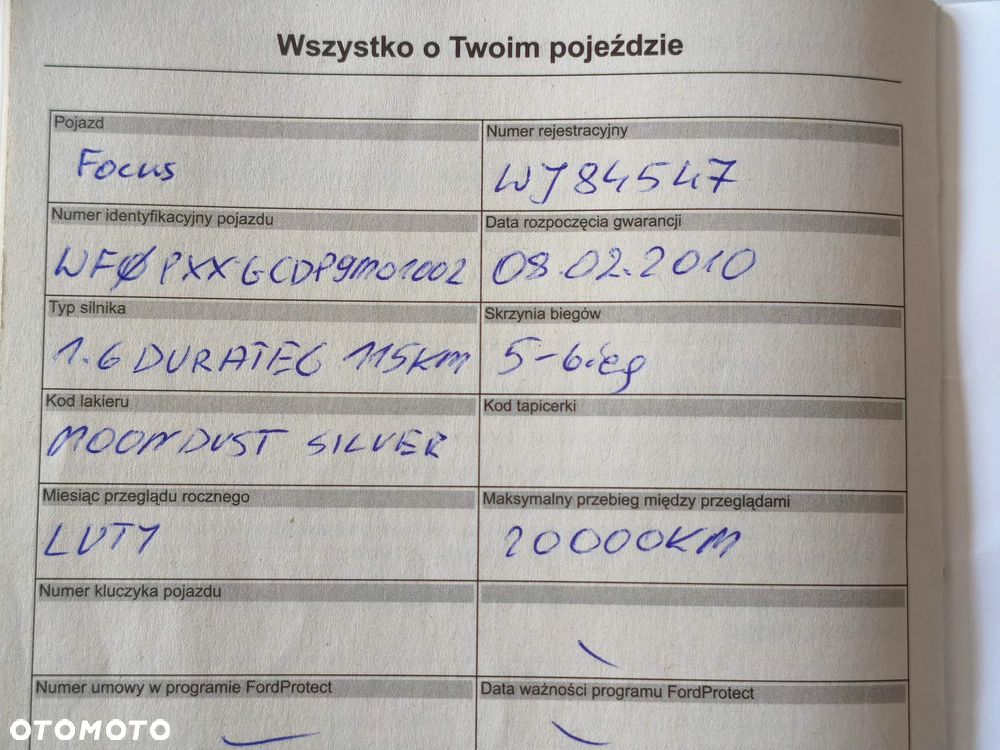 Wszystko o Twoim pojeździe
Pojazd
Focus
Numer rejestracyjny
WJ 84547
Numer identyfikacyjny pojazdu
WFØPXXGCDP9M01002
Data rozpoczęcia gwarancji
08.02.2010
Typ silnika
1.6 DURATEC 115KM
Skrzynia biegów
5-bieg
Kod lakieru
MOONDUST SILVER
Kod tapicerki
Miesiąc przeglądu rocznego
LUTY
Maksymalny przebieg między przeglądami
20000KM
Numer kluczyka pojazdu
Numer umowy w programie FordProtect
Data ważności programu FordProtect
OTOMOTO